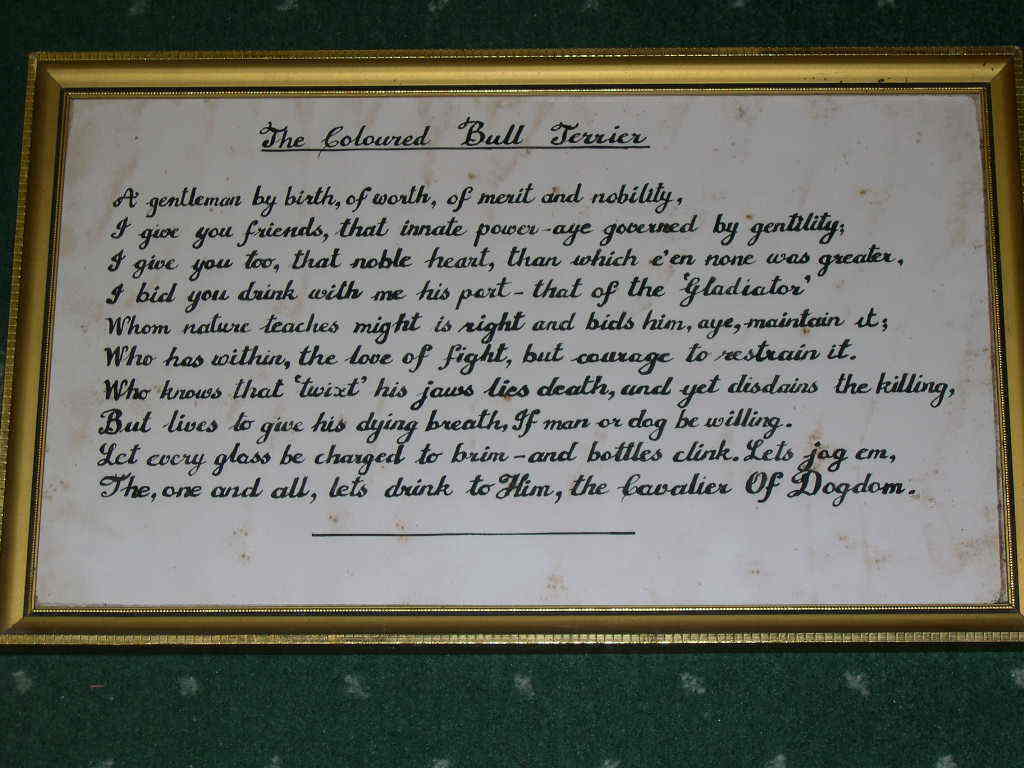 The Coloured Bull Terrier
A gentleman by birth, of worth, of merit and nobility,
I give you friends, that innate power-aye governed by gentility;
I give you too, that noble heart, than which e'en none was greater,
I bid you drink with me his part - that of the 'Gladiator'
Whom nature teaches might is right and bids him, aye, maintain it;
Who has within, the love of fight, but courage to restrain it.
Who knows that 'twixt' his jaws lies death, and yet disdains the killing,
But lives to give his dying breath, If man or dog be willing.
Let every glass be charged to brim - and bottles clink. Lets jog em,
The, one and all, lets drink to Him, the Cavalier Of Dogdom.